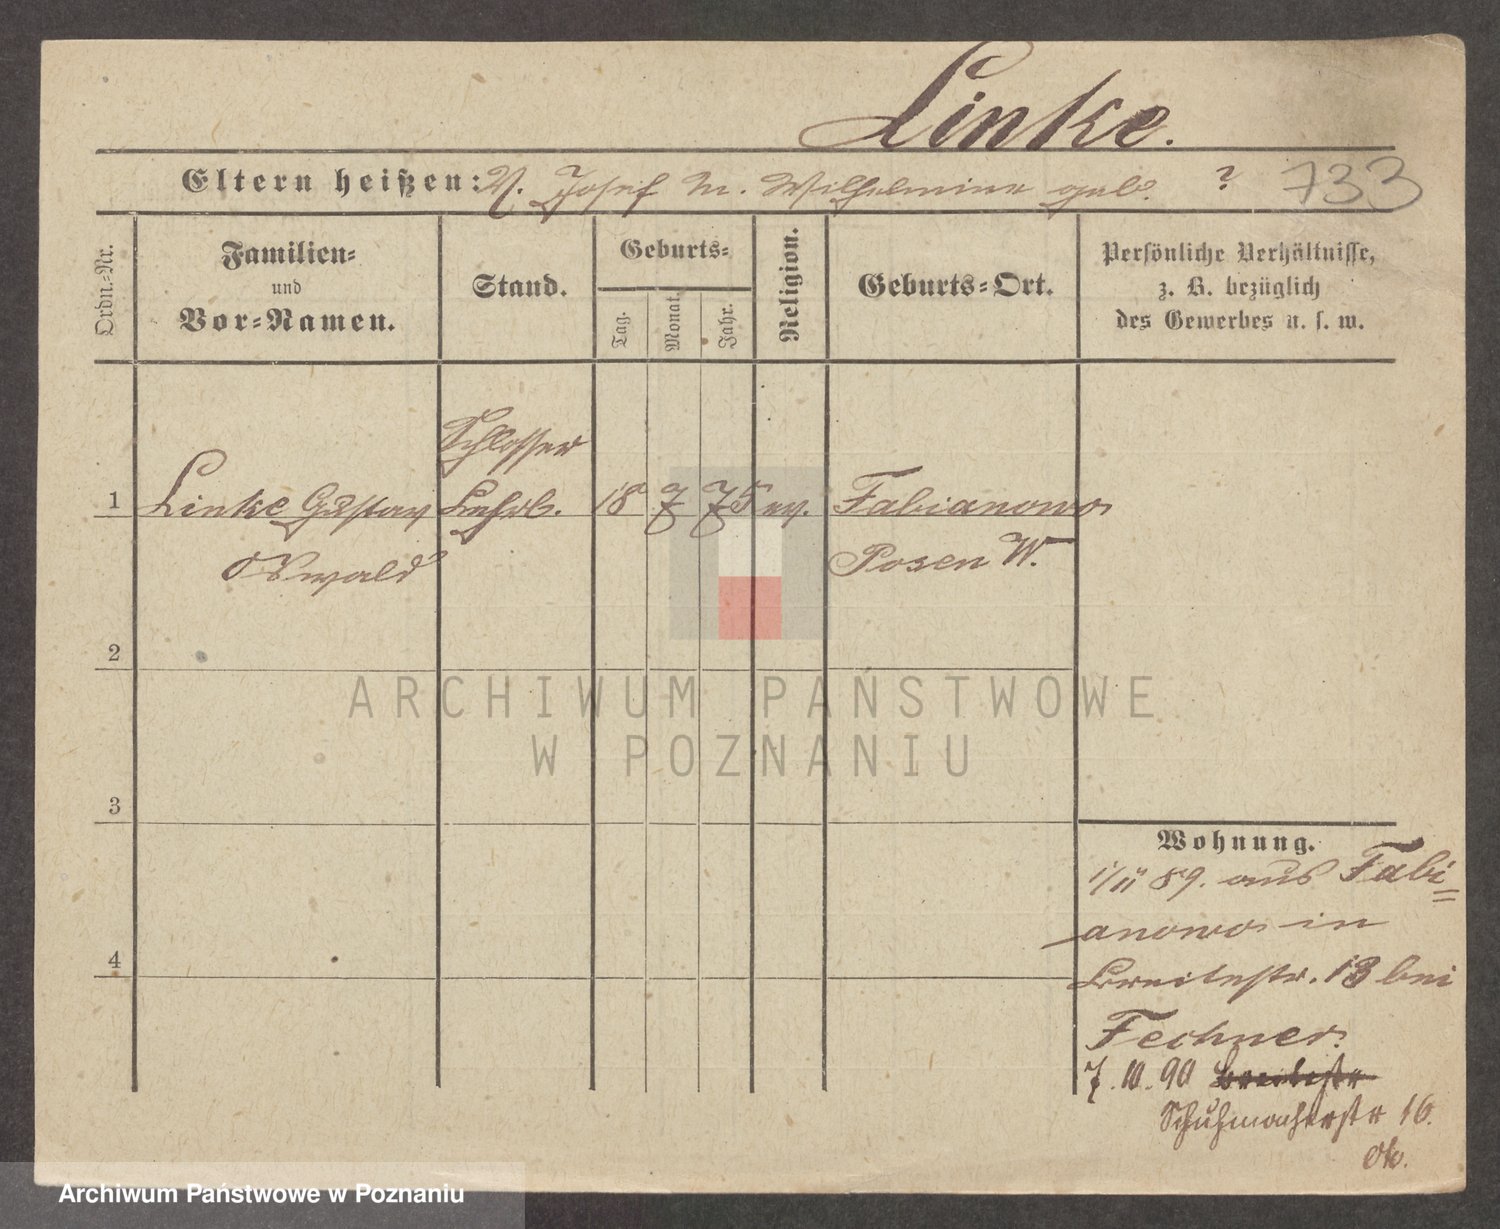 Linke.
Eltern heißen: V. Josef M. Wilhelmine geb. ? 733
Ordn.-Nr.
Familien-
und
Vor-Namen.
Stand.
Geburts-
Tag.
Monat.
Jahr.
Religion.
Geburts-Ort.
Persönliche Verhältnisse,
z. B. bezüglich
des Gewerbes u. s. w.
Schlosser
1 Linke Gustav Lehrl. 18 7 75 ev. Fabianowo
Oswald Posen W.
2
ARCHIWUM PAŃSTWOWE
W POZNANIU
3
Wohnung.
1/11 89. aus Fabi=
anowo in
4
Breitestr. 13 bei
Fechner.
7.10.90 Breitestr
Schuhmacherstr 16.
Archiwum Państwowe w Poznaniu